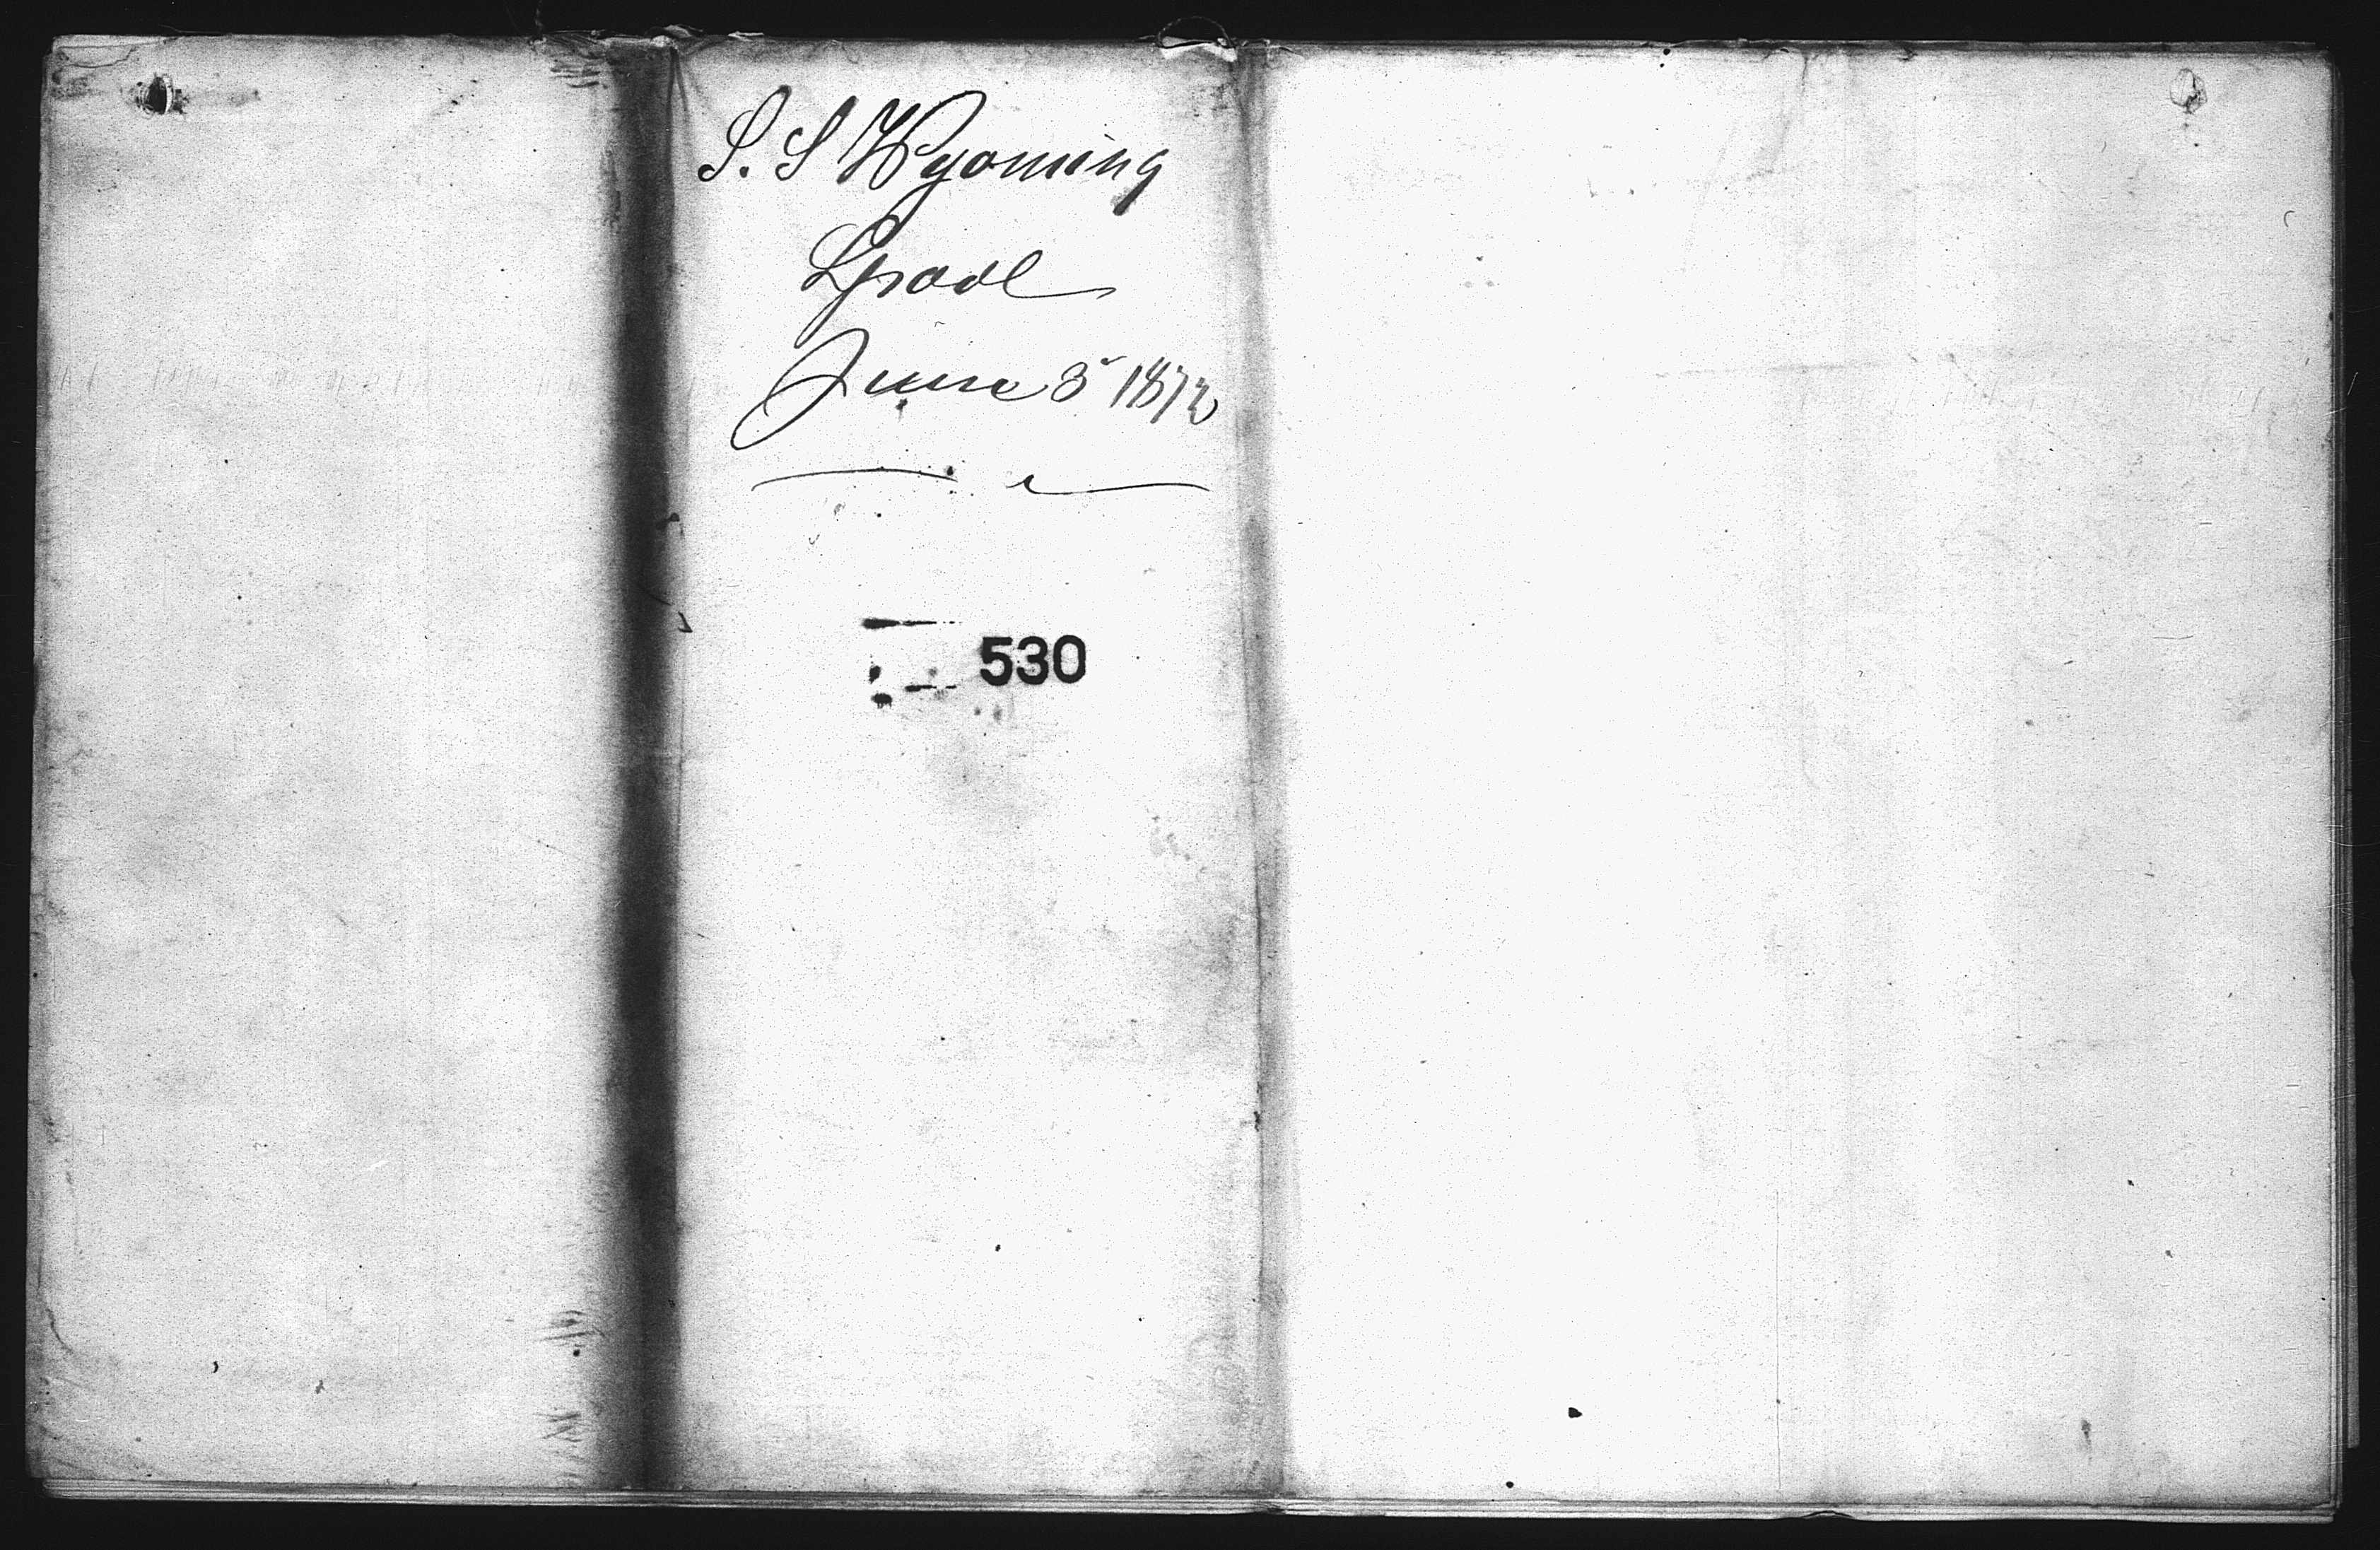 S. S Wyoming
Lpool
June 5 1872
530